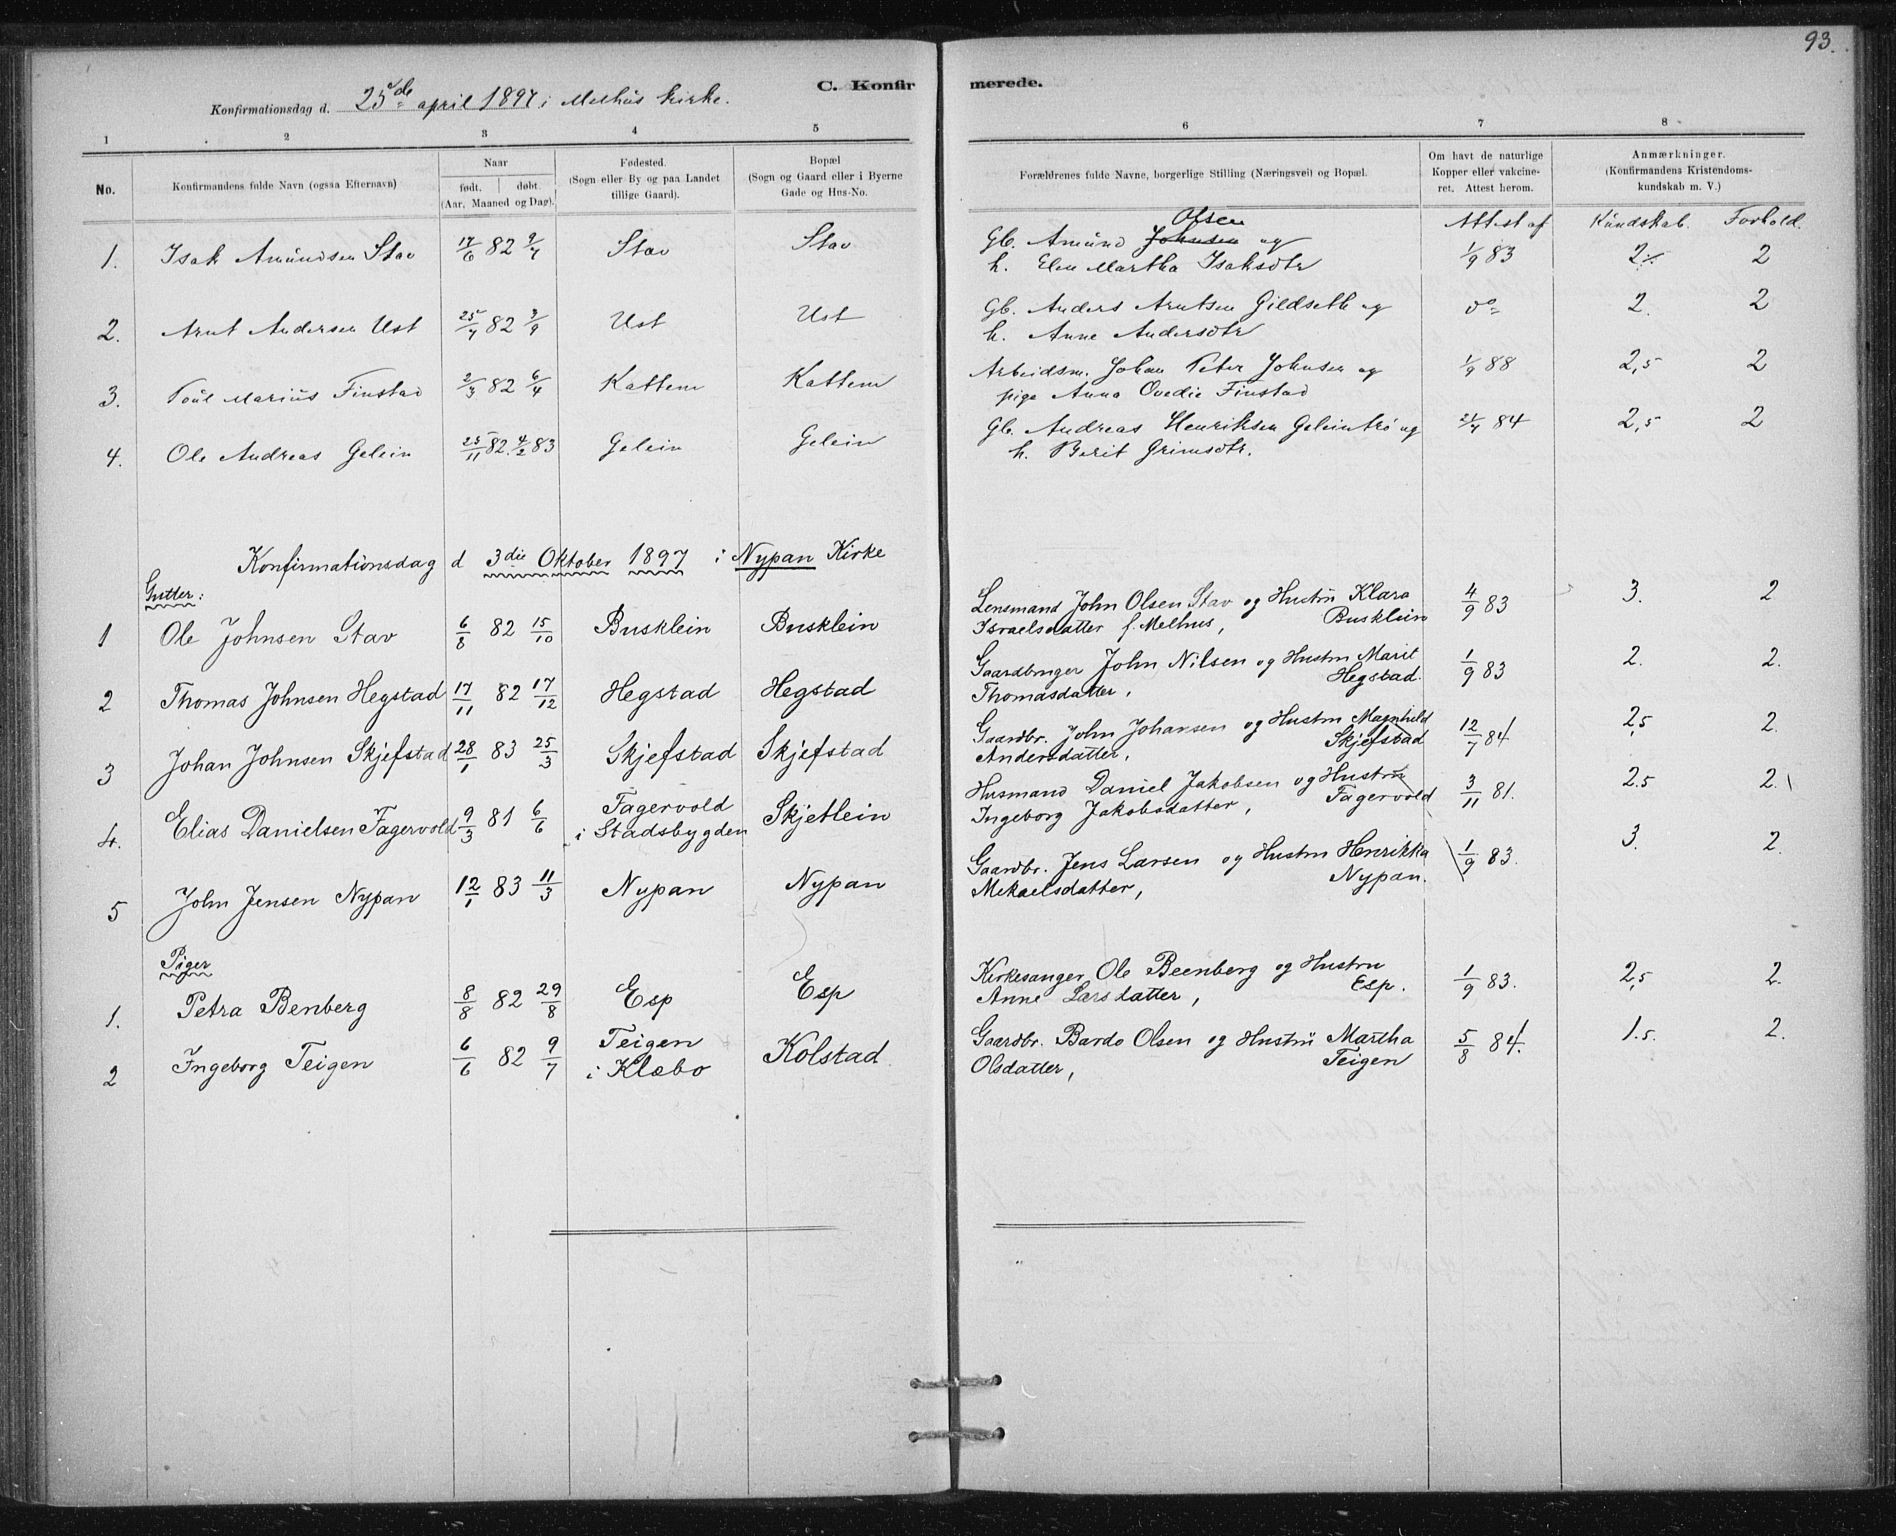 93.
C. Konfirmerede.
Konfirmationsdag d. 25de april 1897 i Melhus kirke.
1 2 3 4 5 6 7 8
No. Konfirmandens fulde Navn (ogsaa Efternavn) Naar født. døbt. (Aar, Maaned og Dag). Fødested. (Sogn eller By og paa Landet tillige Gaard). Bopæl (Sogn og Gaard eller i Byerne Gade og Hus-No. Forældrenes fulde Navne, borgerlige Stilling (Næringsvei) og Bopæl. Om havt de naturlige Kopper eller vakcineret. Attest herom. Anmærkninger. (Konfirmandens Kristendomskundskab m. V.)
Attest af Kundskab. Forhold.
1. Isak Amundsen Stav 17/6 82 9/7 Stav Stav Gb. Amund Johnsen Olsen og 1/9 83 2 2
h. Elen Martha Isaksdtr
2. Arnt Andersen Ust 25/7 82 3/9 Ust Ust Gb. Anders Arntsen Gildseth og do 2. 2
h. Anne Andersdtr
3. Poul Marius Finstad 2/3 82 6/4 Kattem Kattem Arbeidsm. Johan Peter Johnsen og 1/9 88 2,5 2
pige Anna Ovedie Finstad
4. Ole Andreas Gelein 25/11 82. 4/2 83 Gelein Gelein Gb. Andreas Henriksen Geleintrø og 21/4 84 2,5 2
h. Berit Grimsdtr.
Konfirmationsdag d 3die Oktober 1897 i Nypan Kirke
Gutter:
1 Ole Johnsen Stav 6/8 82 15/10 Busklein Busklein Lensmand John Olsen Stav og Hustru Klara 4/9 83 3. 2
Israelsdatter f. Melhus, Busklein
2 Thomas Johnsen Hegstad 17/11 82 17/12 Hegstad Hegstad Gaardbruger John Nilsen og Hustru Marit 1/9 83 2. 2.
Thomasdatter, Hegstad.
3 Johan Johnsen Skjefstad 28/1 83 25/3 Skjefstad Skjefstad Gaardbr. John Johansen og Hustru Magnhild 12/7 84 2,5 2.
Andersdatter, Skjefstad
4. Elias Danielsen Fagervold 9/3 81 6/6 Fagervold i Stadsbygden Skjetlein Husmand Daniel Jakobsen og Hustru 3/11 81. 2.5 2.
Ingeborg Jakobsdatter, Fagervold
5 John Jensen Nypan 12/1 83 11/3 Nypan Nypan Gaardbr. Jens Larsen og Hustru Henrikka 1/9 83. 3. 2.
Mekaelsdatter, Nypan.
Piger
1. Petra Benberg 8/8 82 29/8 Esp Esp Kirkesanger Ole Beenberg og Hustru 1/9 83. 2,5 2.
Anne Larsdatter, Esp.
2 Ingeborg Teigen 6/6 82 9/7 Teigen i Klæbo Kolstad Gaardbr. Bardo Olsen og Hustru Martha 5/8 84. 1.5. 2.
Olsdatter, Teigen